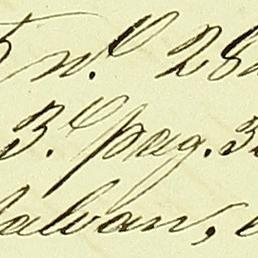 5 n.º 28
3.º pag. 3
alvan,